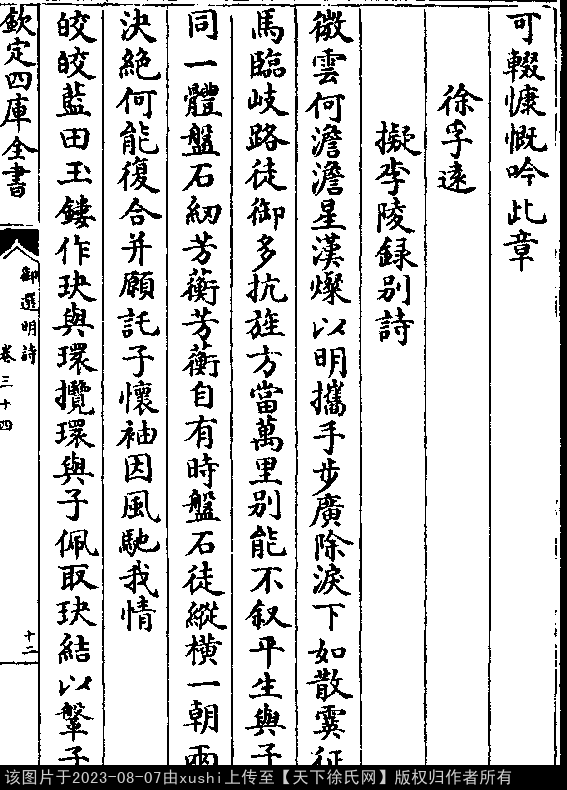 可輟慷慨吟此章
徐孚遠
擬李陵録别詩
微雲何澹澹星漢燦以明攜手步廣除淚下如散霙征
馬臨岐路徒御多抗旌方當萬里别能不叙平生與子
同一體盤石紉芳蘅芳蘅自有時盤石徒縱横一朝兩
決絶何能復合并願託子懷袖因風馳我情
皎皎藍田玉鏤作玦與環攬環與子佩取玦結以鞶子
欽定四庫全書
御選明詩
卷三十四
十二
该图片于2023-08-07由xushi上传至【天下徐氏网】版权归作者所有